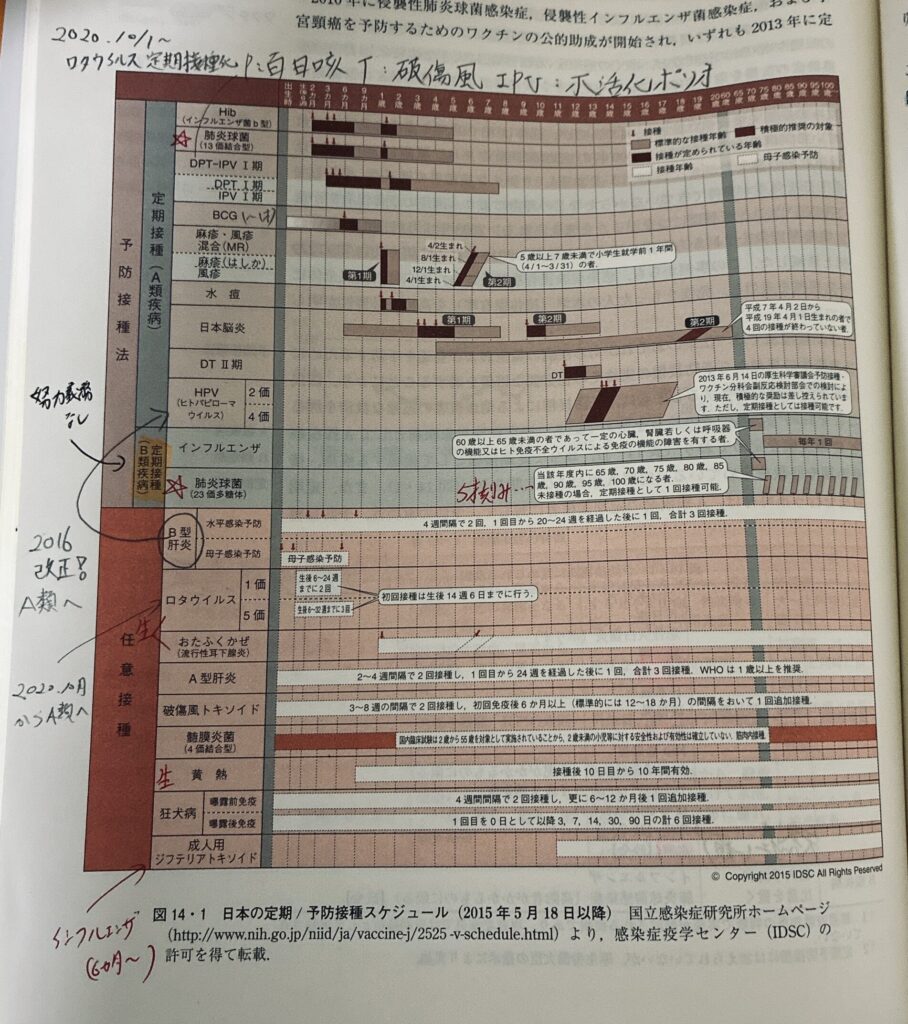 宮頸癌を予防するためのワクチンの公的助成が開始され，いずれも 2013 年に定
2020.10/1～
ロタウイルス 定期接種化 P：百日咳 T：破傷風 IPV：不活化ポリオ
出生時 2カ月 3カ月 6カ月 9カ月 1歳 2歳 3歳 4歳 5歳 6歳 7歳 8歳 9歳 10歳 11歳 12歳 13歳 14歳 15歳 16歳 17歳 18歳 19歳 20歳 60歳 65歳 70歳 75歳 80歳 85歳 90歳 95歳 100歳
接種
標準的な接種年齢
積極的推奨の対象
接種が定められている年齢
接種年齢
母子感染予防
予防接種法
定期接種（A類疾病）
Hib
（インフルエンザ菌b型）
肺炎球菌
（13価結合型）
DPT-IPV Ⅰ期
DPT Ⅰ期
IPV Ⅰ期
BCG
麻疹・風疹
混合(MR)
麻疹(はしか)
風疹
第1期
4/2生まれ
8/1生まれ
12/1生まれ
4/1生まれ
第2期
5歳以上7歳未満で小学生就学前1年間
（4/1～3/31）の者.
水痘
日本脳炎
第1期
第2期
第2期
平成7年4月2日から
平成19年4月1日生まれの者で
4回の接種が終わっていない者.
DT Ⅱ期
DT
HPV
（ヒトパピローマ
ウイルス）
2価
4価
2013年6月14日の厚生科学審議会予防接種・
ワクチン分科会副反応検討部会での検討によ
り，現在，積極的な奨励は差し控えられていま
す. ただし，定期接種としては接種可能です.
努力義務
なし
定期接種
（B類疾病）
インフルエンザ
60歳以上65歳未満の者であって一定の心臓，腎臓若しくは呼吸器
の機能又はヒト免疫不全ウイルスによる免疫の機能の障害を有する者.
毎年1回
肺炎球菌
（23価多糖体）
5才刻み…
当該年度内に65歳，70歳，75歳，80歳，85
歳，90歳，95歳，100歳になる者.
未接種の場合，定期接種として1回接種可能.
任意接種
B型
肝炎
水平感染予防
4週間隔で2回，1回目から20～24週を経過した後に1回，合計3回接種.
母子感染予防
母子感染予防
2016
改正！
A類へ
ロタウイルス
1価
5価
生後6～24週
までに2回
生後6～32週までに3回
初回接種は生後14週6日までに行う.
生
おたふくかぜ
（流行性耳下腺炎）
2020.10月
からA類へ
A型肝炎
2～4週間隔で2回接種し，1回目から24週を経過した後に1回，合計3回接種. WHOは1歳以上を推奨.
破傷風トキソイド
3～8週の間隔で2回接種し，初回免疫後6か月以上（標準的には12～18か月）の間隔をおいて1回追加接種.
髄膜炎菌
（4価結合型）
国内臨床試験は2歳から55歳を対象として実施されていることから，2歳未満の小児等に対する安全性および有効性は確立していない. 筋肉内接種.
生 黄熱
接種後10日目から10年間有効.
狂犬病
曝露前免疫
4週間間隔で2回接種し，更に6～12か月後1回追加接種.
曝露後免疫
1回目を0日として以降3，7，14，30，90日の計6回接種.
成人用
ジフテリアトキソイド
© Copyright 2015 IDSC All Rights Reserved
インフルエンザ
（6カ月～）
図 14・1 日本の定期 / 予防接種スケジュール（2015 年 5 月 18 日以降） 国立感染症研究所ホームページ
（http://www.nih.go.jp/niid/ja/vaccine-j/2525-v-schedule.html）より，感染症疫学センター（IDSC）の
許可を得て転載．